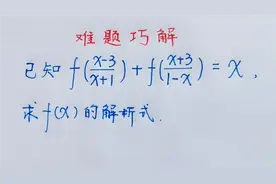 难题巧解
已知 f(\frac{x-3}{x+1}) + f(\frac{x+3}{1-x}) = x,
求 f(x) 的解析式.